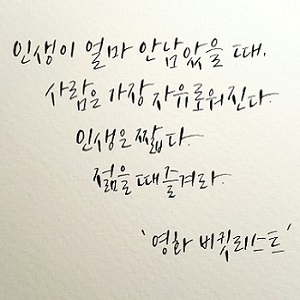 인생이 얼마 안남았을 때,
사람은 가장 자유로워진다.
인생은 짧다.
젊을때 즐겨라.
'영화 버킷리스트'